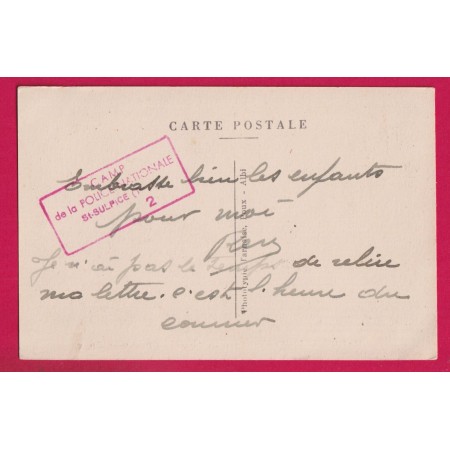 CARTE POSTALE
CAMP
de la POLICE NATIONALE
St-SULPICE
2
Embrasse bien les enfants
pour moi
Je n'ai pas le temps de relire
ma lettre. c'est l'heure du
courrier
Phototypie Tarnaise, Albi